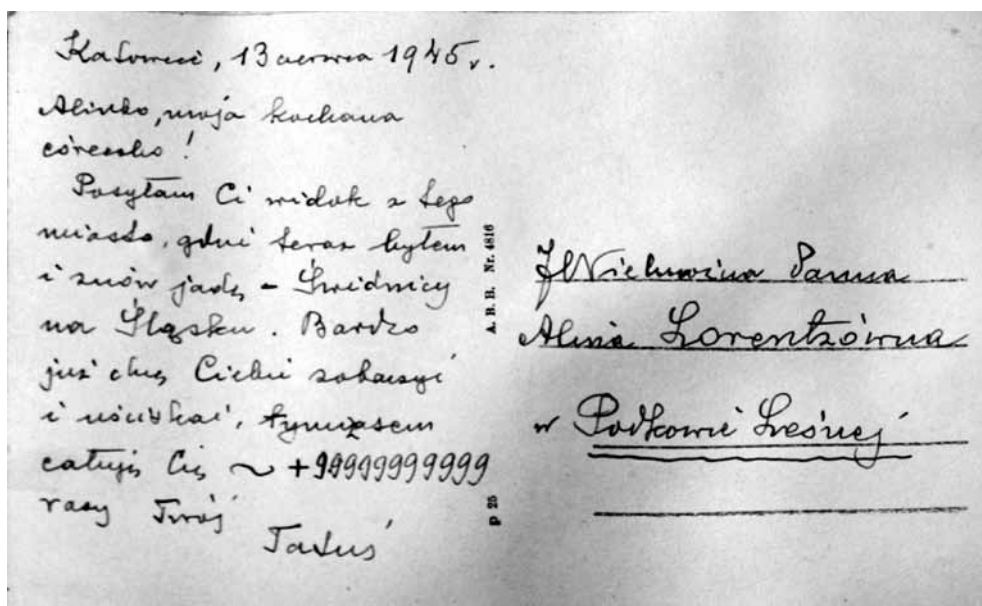 Katowice, 13 czerwca 1945 r.
Alinko, moja kochana
córeczko!
Posyłam Ci widok z tego
miasta, gdzie teraz byłem
i znów jadę – Świdnicy
na Śląsku. Bardzo
już chcę Ciebie zobaczyć
i uściskać, tymczasem
całuję Cię ~ +99999999999
razy Twój
Tatuś
A. B. B. Nr. 4816
p 25
JWielmożna Panna
Alina Lorentzówna
w Podkowie Leśnej